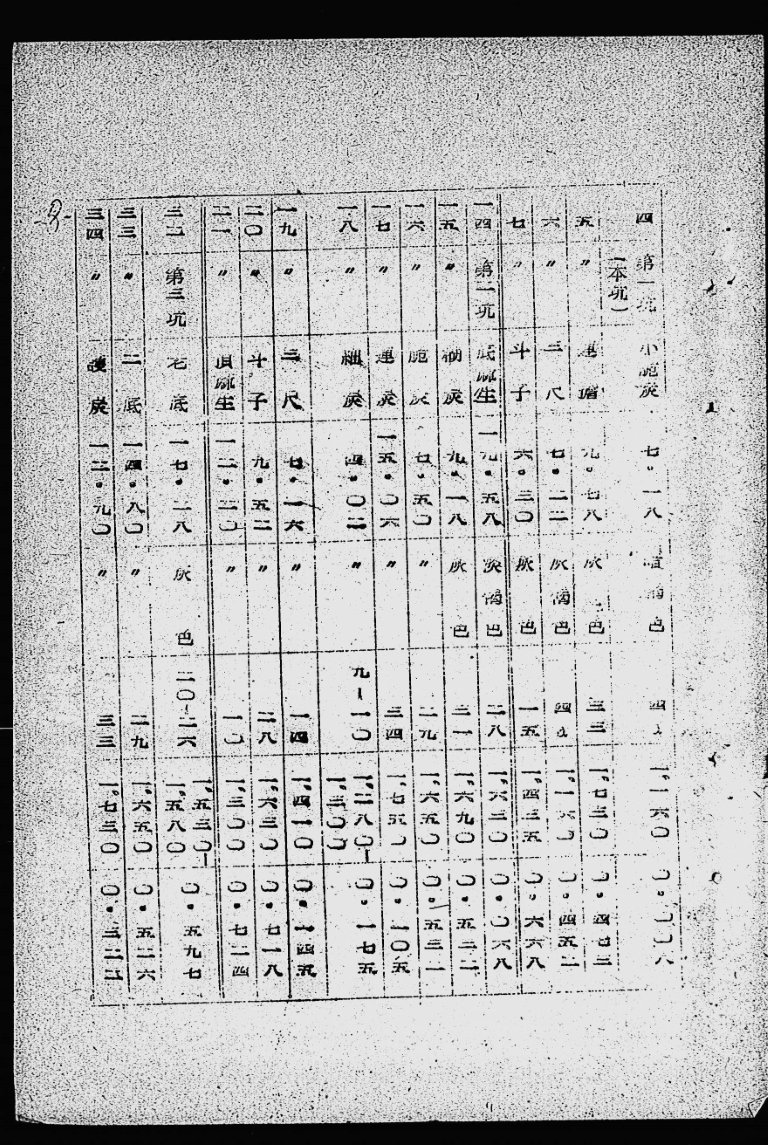 四 第一坑 小 炭 七。一八 色 四 一。一六〇 〇。〇〇八
(本坑)
五 〃 九。七八 灰 色 三三 一。七三〇 〇。四七三
六 〃 三尺 七。二二 灰褐色 四 一。一六〇 〇。四五二
七 〃 斗子 六。三〇 灰 色 一五 一。四三五 〇。六六八
一四 第二坑 底 生 一九。五八 淡褐色 二八 一。六三〇 〇。〇六八
一五 〃 炭 九。一八 灰 色 三一 一。六九〇 〇。五三二
一六 〃 炭 七。五〇 〃 二九 一。六五〇 〇。五三一
一七 〃 連炭 一五。〇六 〃 三四 一。七五〇 〇。一〇五
一八 〃 炭 四。〇二 〃 九―一〇 一。二八〇―一。三〇〇 〇。一七五
一九 〃 三尺 七。一六 〃 一四 一。四一〇 〇。一四五
二〇 〃 斗子 九。五二 〃 二八 一。六三〇 〇。七一八
二一 〃 生 一二。二〇 〃 一〇 一。三〇〇 〇。七二四
三二 第三坑 老底 一七。二八 灰 色 二〇―二六 一。五三〇―一。五八〇 〇。五九七
三三 〃 二底 一四。八〇 〃 二九 一。六五〇 〇。五二六
三四 〃 炭 一二。九〇 〃 三三 一。七三〇 〇。三二二